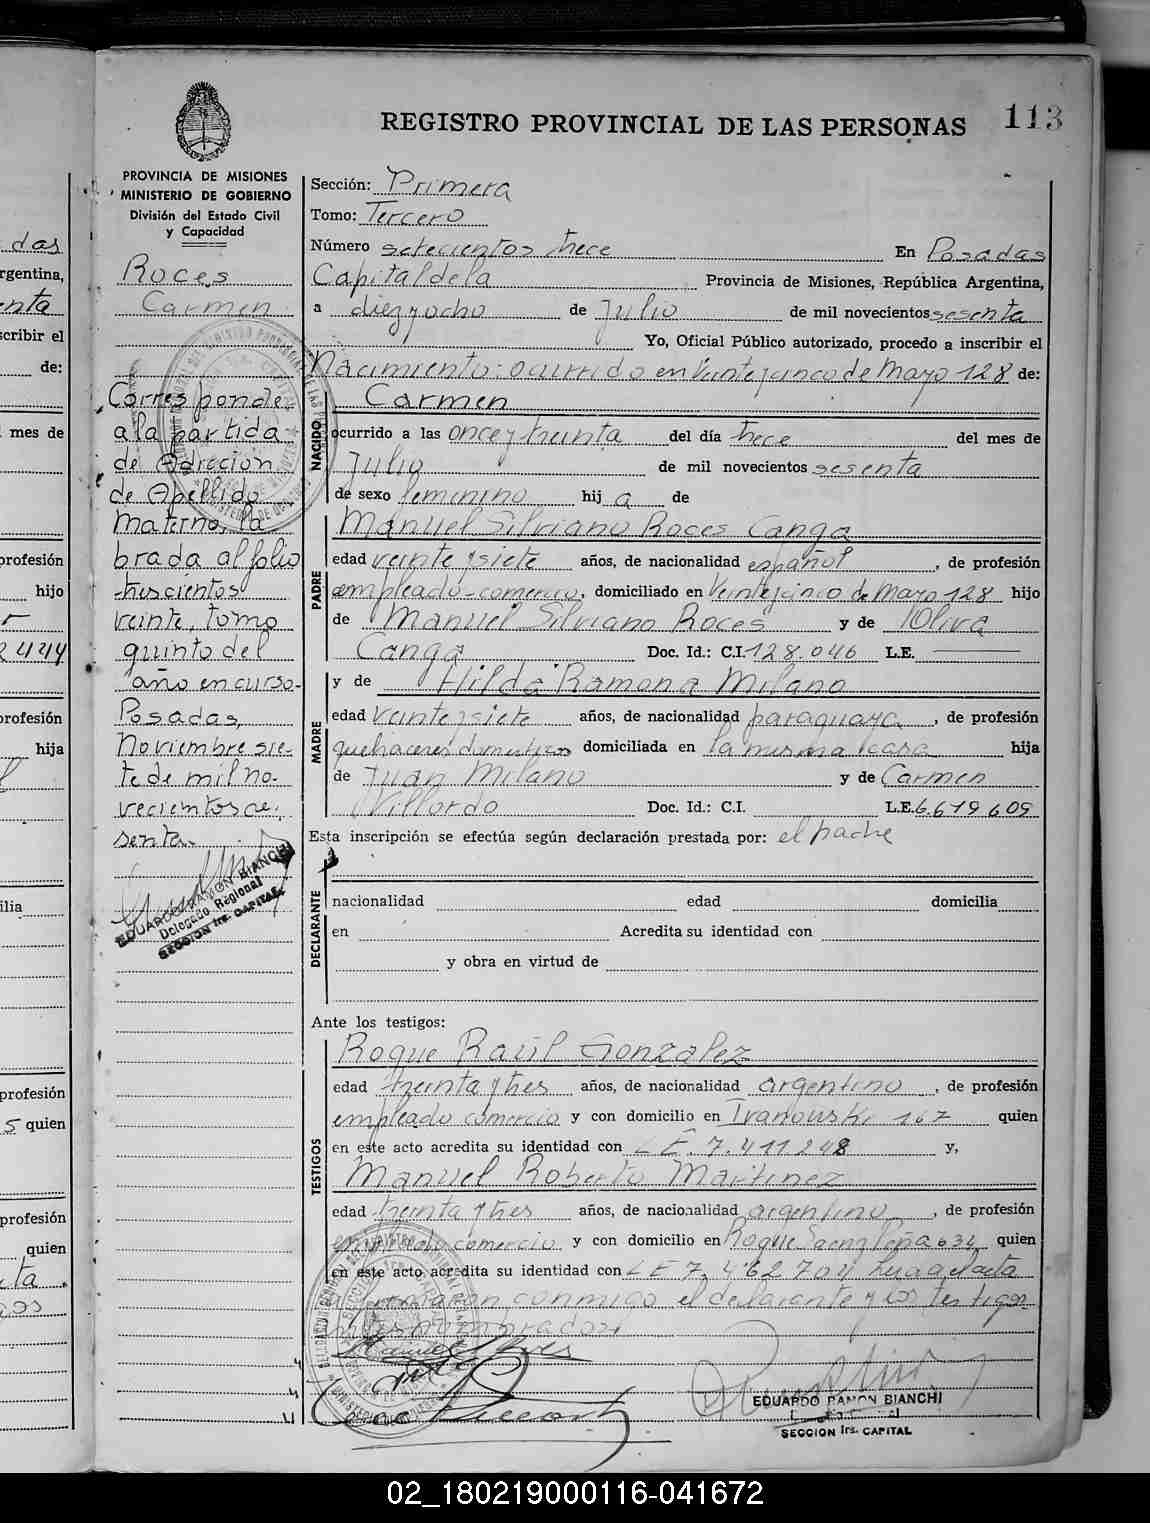 REGISTRO PROVINCIAL DE LAS PERSONAS
113
PROVINCIA DE MISIONES
MINISTERIO DE GOBIERNO
División del Estado Civil
y Capacidad
Roces
Carmen
Corresponde
a la partida
de Adición
de Apellido
Materno, la
brada al folio
trescientos
veinte, tomo
quinto del
año en curso.
Posadas,
Noviembre sie-
te de mil no-
vecientos se-
senta.
EDUARDO RAMON BIANCHI
Delegado Regional
SECCION 1ra. CAPITAL
Sección: Primera
Tomo: Tercero
Número setecientos trece En Posadas
Capital de la Provincia de Misiones, República Argentina,
a diez y ocho de Julio de mil novecientos sesenta
Yo, Oficial Público autorizado, procedo a inscribir el
Nacimiento: ocurrido en Veinteycinco de Mayo 128 de:
NACIDO
Carmen
ocurrido a las once y treinta del día trece del mes de
Julio de mil novecientos sesenta
de sexo femenino hija de
PADRE
Manuel Silviano Roces Canga
edad veinte y siete años, de nacionalidad español, de profesión
empleado-comercio, domiciliado en Veinteycinco de Mayo 128 hijo
de Manuel Silviano Roces y de Oliva
Canga Doc. Id.: C.I. 128.046 L.E.
MADRE
y de Hilda Ramona Milano
edad veinte y siete años, de nacionalidad paraguaya, de profesión
quehaceres domesticos domiciliada en la misma casa hija
de Juan Milano y de Carmen
Villordo Doc. Id.: C.I. L.E. 6.619.609
Esta inscripción se efectúa según declaración prestada por: el padre
DECLARANTE
nacionalidad edad domicilia
en Acredita su identidad con
y obra en virtud de
Ante los testigos:
TESTIGOS
Roque Raúl Gonzalez
edad treinta y tres años, de nacionalidad argentino, de profesión
empleado comercio y con domicilio en 167 quien
en este acto acredita su identidad con L E. 7.411.248 y,
Manuel Roberto Martinez
edad treinta y tres años, de nacionalidad argentino, de profesión
empleado comercio y con domicilio en Roque Saenz Peña 634 quien
en este acto acredita su identidad con L E 7.462.704 el acta
firmaron conmigo el declarante y los testigos
EDUARDO RAMON BIANCHI
SECCION 1ra. CAPITAL
02_180219000116-041672